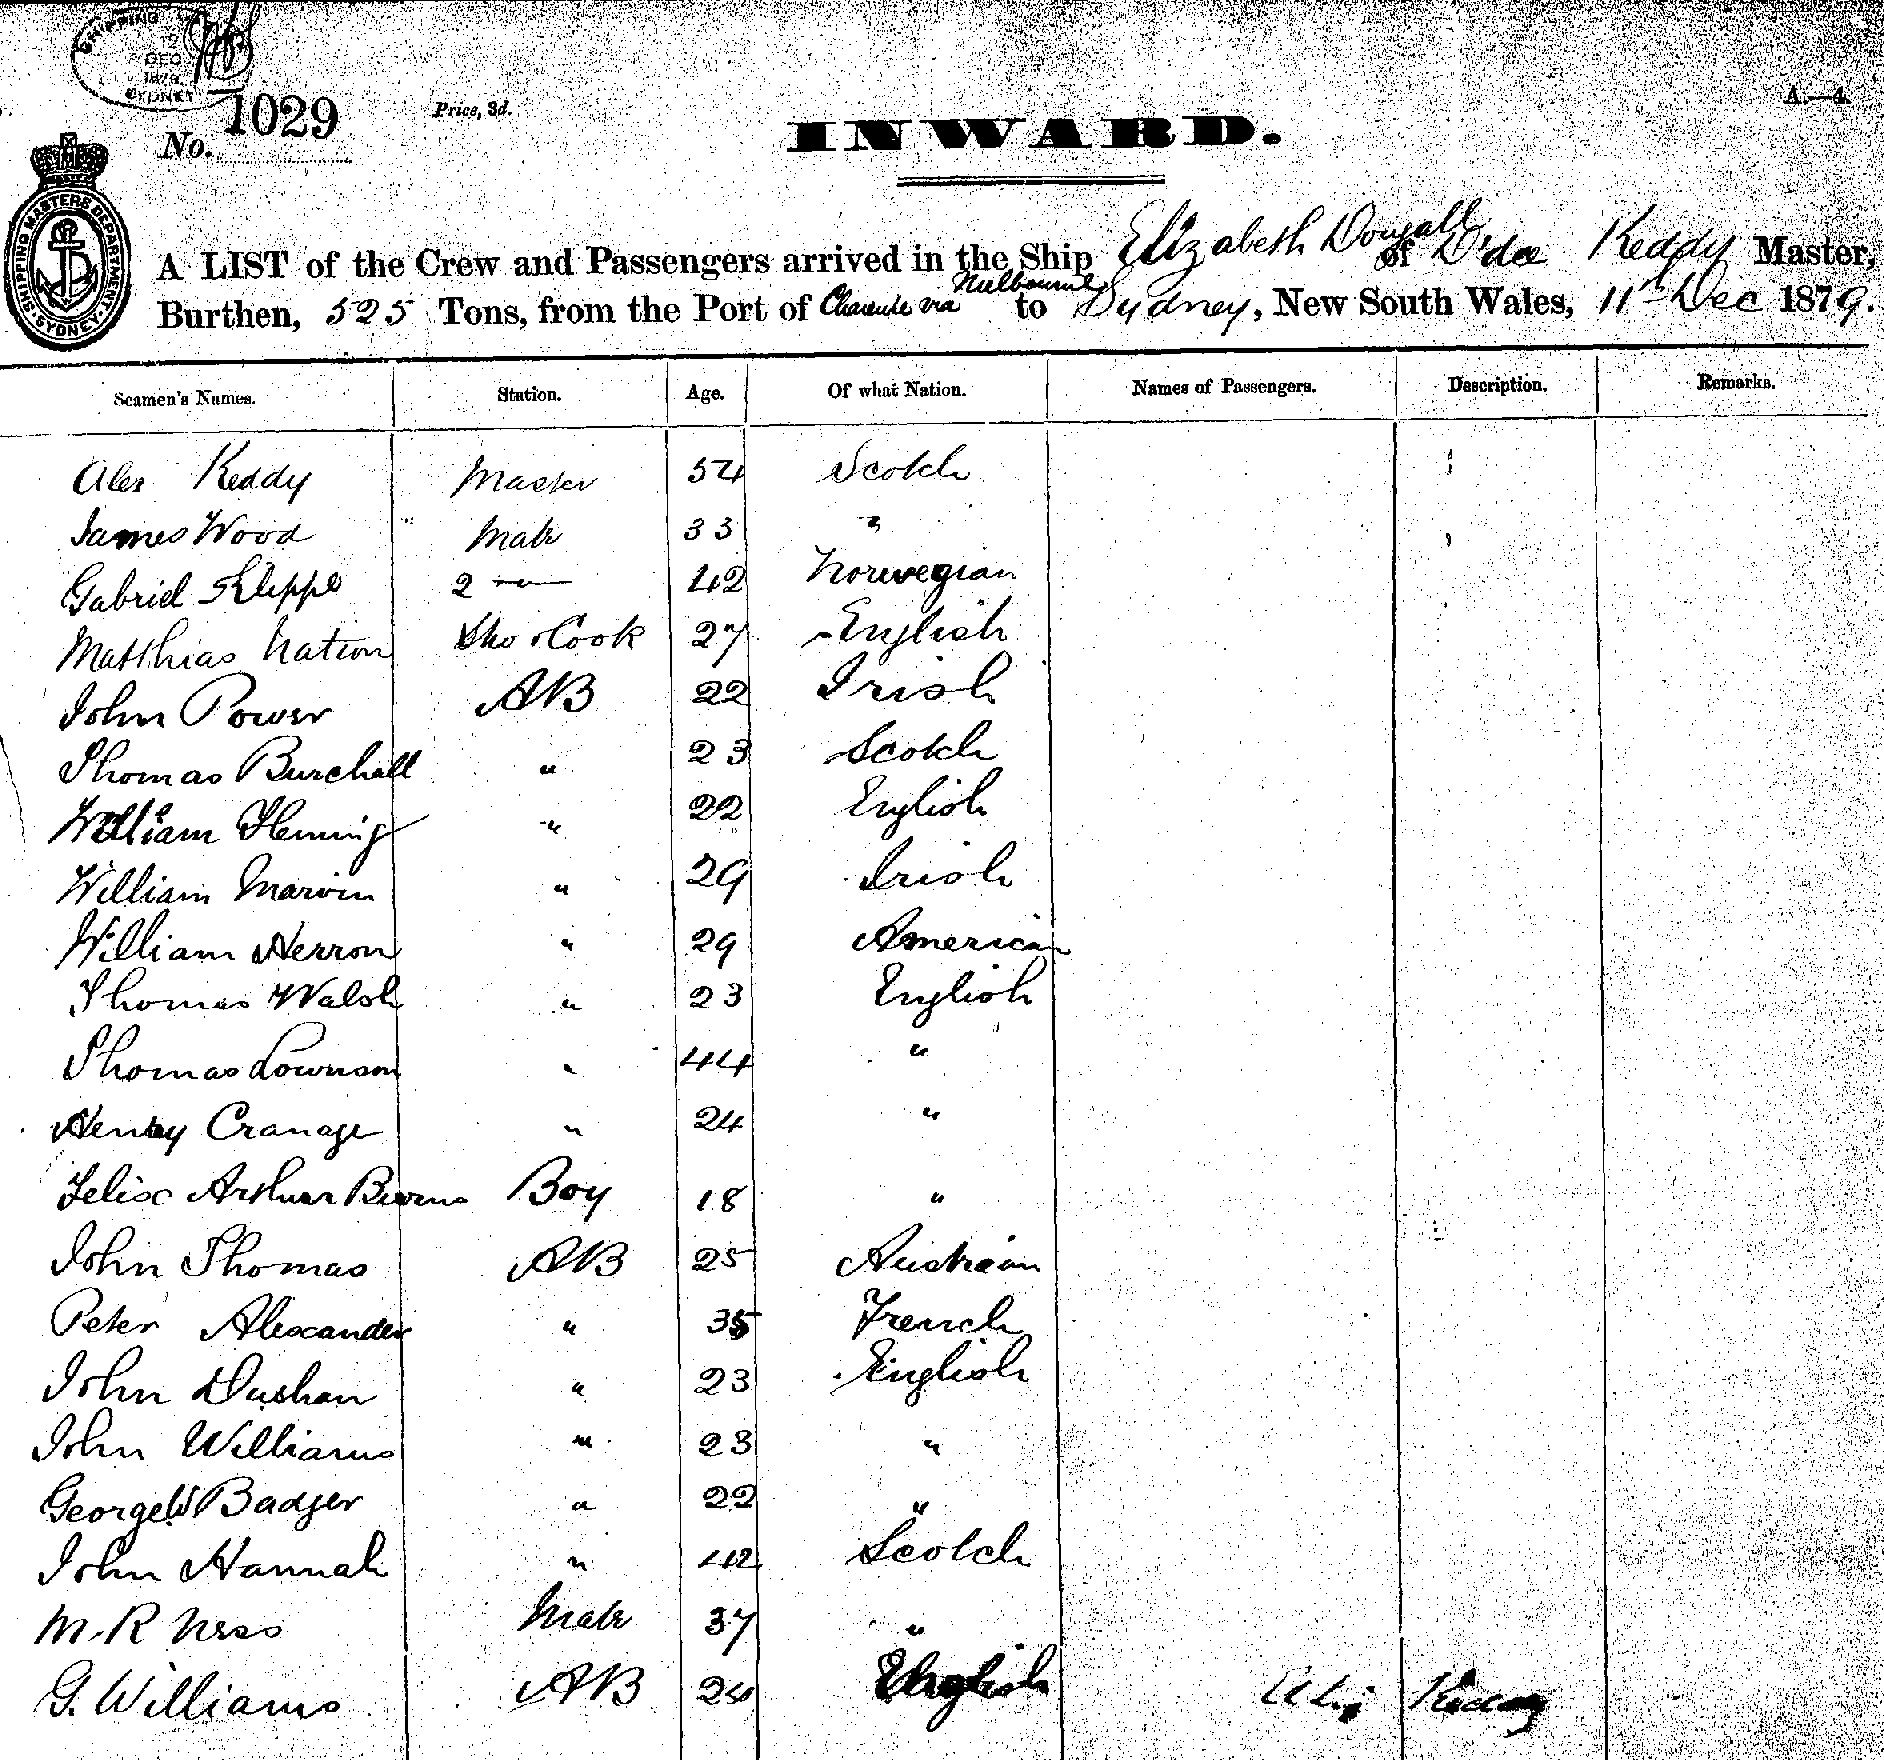 SHIPPING
DEC
1879
SYDNEY
No. 1029
Price, 3d.
A.—4.
INWARD.
SHIPPING MASTERS DEPARTMENT SYDNEY
A LIST of the Crew and Passengers arrived in the Ship Elizabeth Dougall of D'dee Keddy Master,
Burthen, 525 Tons, from the Port of Charente via Melbourne to Sydney, New South Wales, 11th Dec 1879.
Seamen's Names. Station. Age. Of what Nation. Names of Passengers. Description. Remarks.
Alex Keddy Master 54 Scotch
James Wood Mate 33 "
Gabriel Kleppe 2 — 42 Norwegian
Matthias Nation Stw & Cook 27 English
John Power AB 22 Irish
Thomas Burchall " 23 Scotch
William Fleming " 22 English
William Marvin " 29 Irish
William Herron " 29 American
Thomas Walsh " 23 English
Thomas Lownson " 44 "
Henry Cranage " 24 "
Felix Arthur Burns Boy 18 "
John Thomas AB 25 Austrian
Peter Alexander " 35 French
John Dushan " 23 English
John Williams " 23 "
George W Badger " 22 "
John Hannah " 42 Scotch
M. R Ness Mate 37 "
G. Williams AB 24 English
Alex Keddy